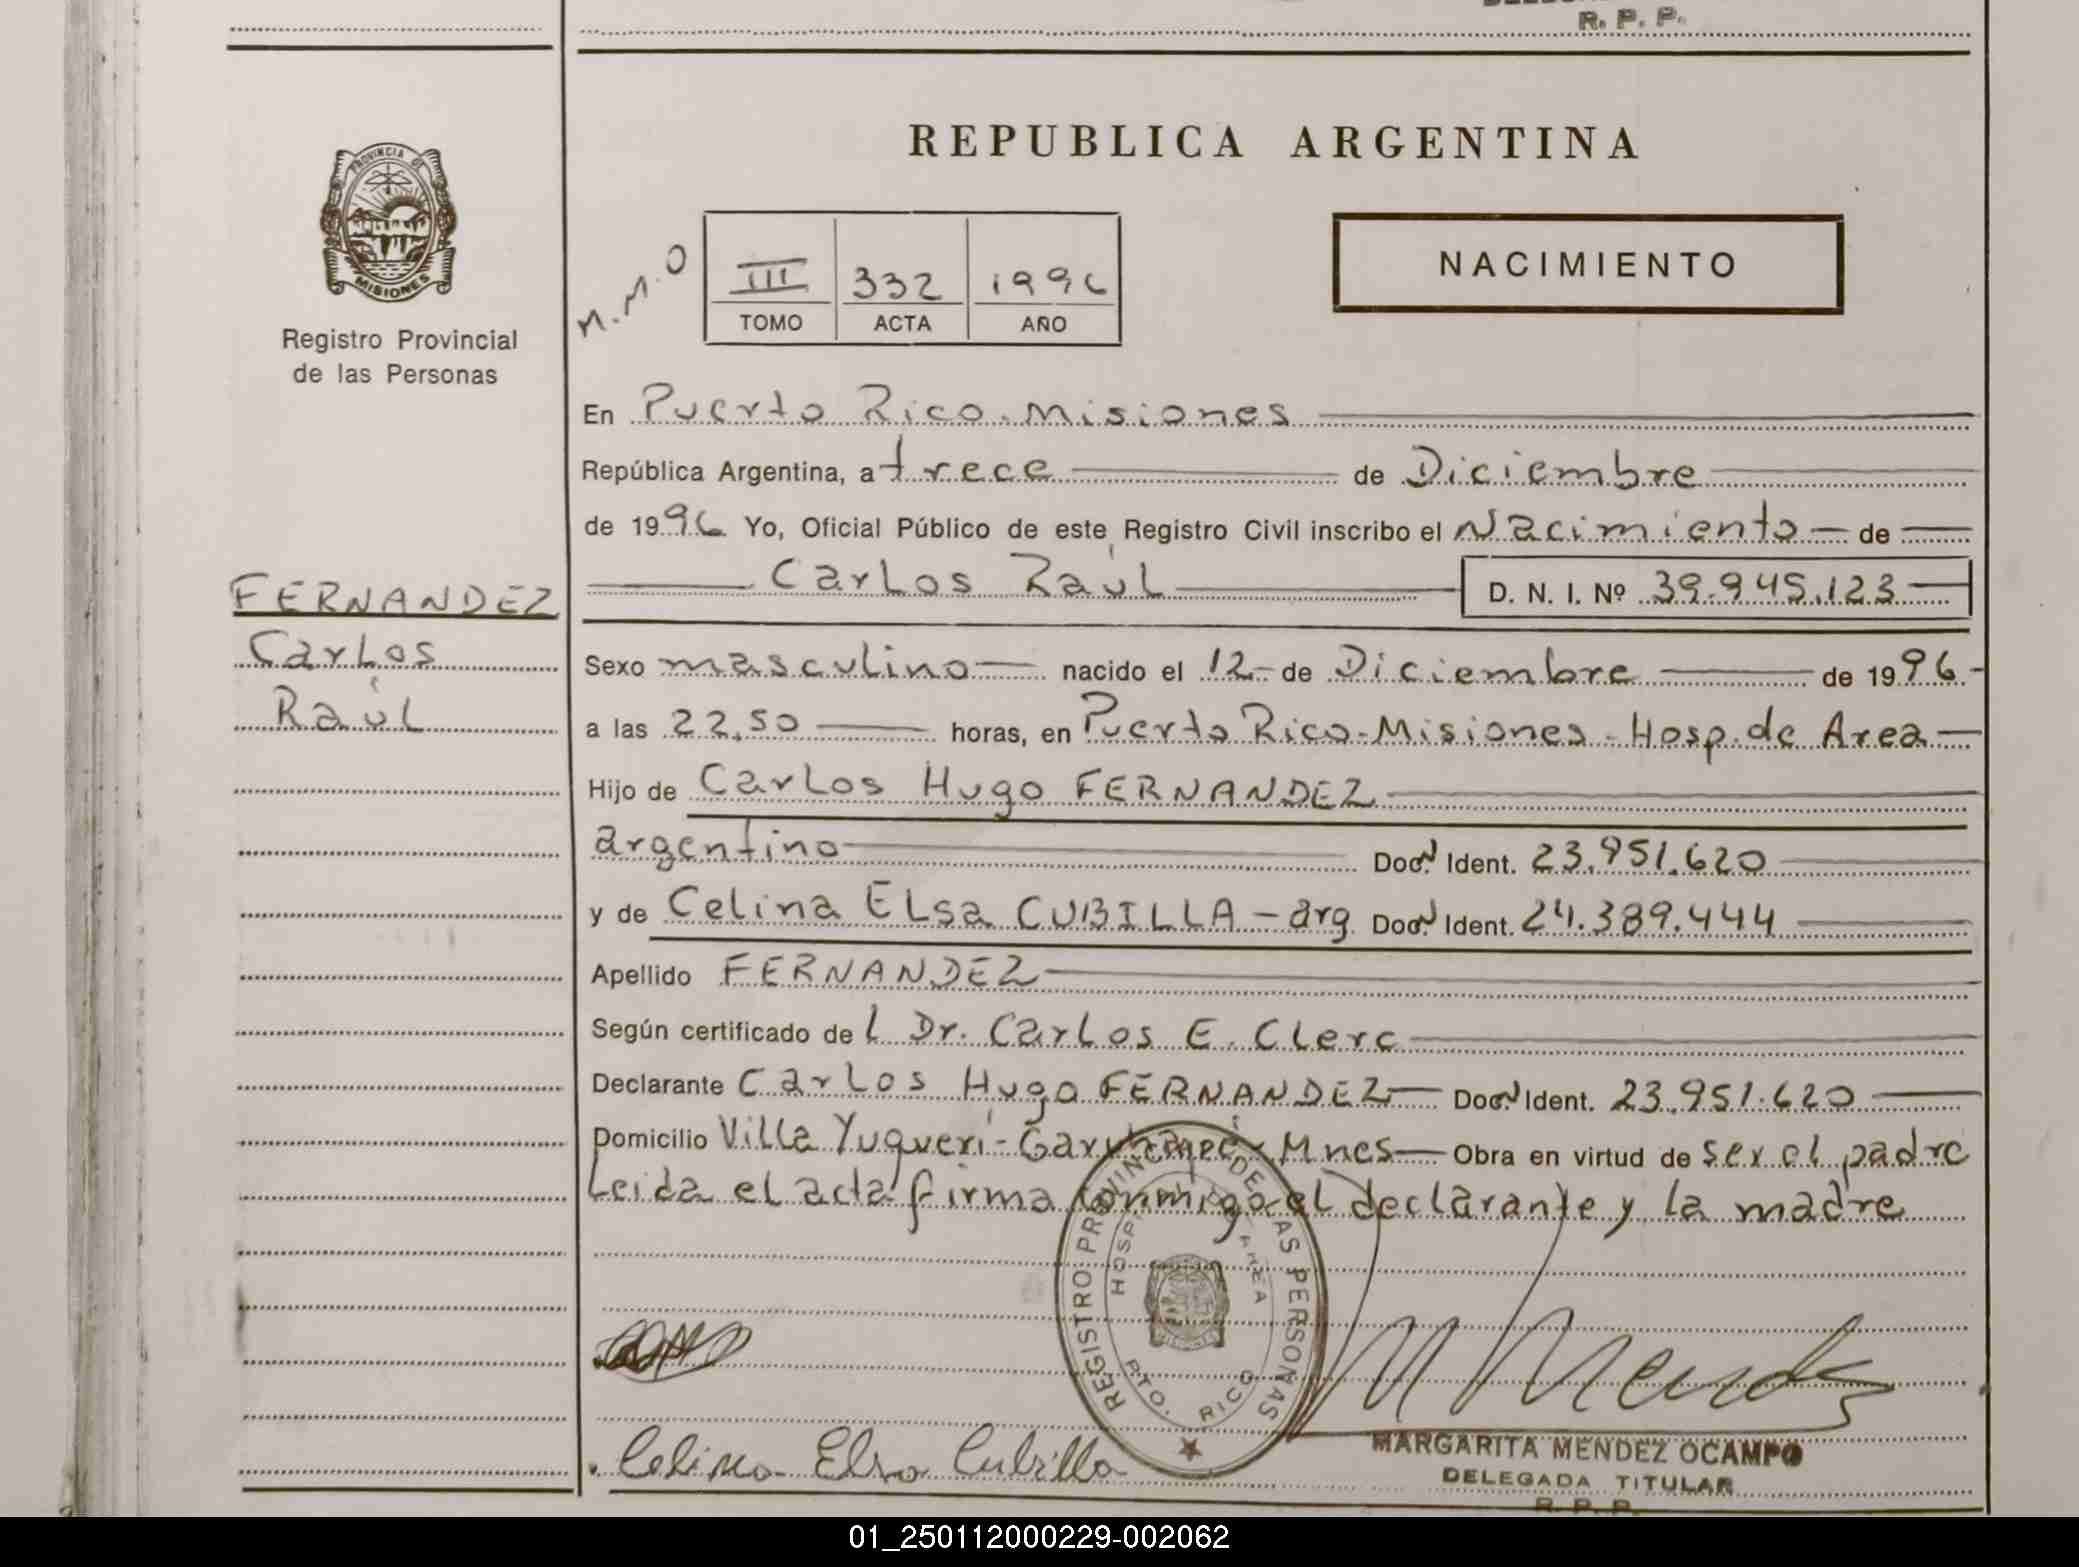 R. P. P.
PROVINCIA DE
MISIONES
Registro Provincial
de las Personas
REPUBLICA ARGENTINA
M.M.O
III 332 1996
TOMO ACTA AÑO
NACIMIENTO
En Puerto Rico - Misiones
República Argentina, a trece de Diciembre
de 1996 Yo, Oficial Público de este Registro Civil inscribo el Nacimiento de
Carlos Raúl D. N. I. Nº 39.945.123
FERNANDEZ
Carlos
Raúl
Sexo masculino nacido el 12 de Diciembre de 1996
a las 22,50 horas, en Puerto Rico - Misiones - Hosp. de Area
Hijo de Carlos Hugo FERNANDEZ
argentino Doc. Ident. 23.951.620
y de Celina Elsa CUBILLA - arg Doc. Ident. 24.389.444
Apellido FERNANDEZ
Según certificado del Dr. Carlos E. Clerc
Declarante Carlos Hugo FERNANDEZ Doc. Ident. 23.951.620
Domicilio Villa Yuqueri - Garuhapé - Mnes Obra en virtud de ser el padre
Leida el acta firma conmigo el declarante y la madre
REGISTRO PROVINCIAL DE LAS PERSONAS
HOSPITAL DE AREA
PTO. RICO
M Mendez
Celina Elsa Cubilla
MARGARITA MENDEZ OCAMPO
DELEGADA TITULAR
R. P. P.
01_250112000229-002062